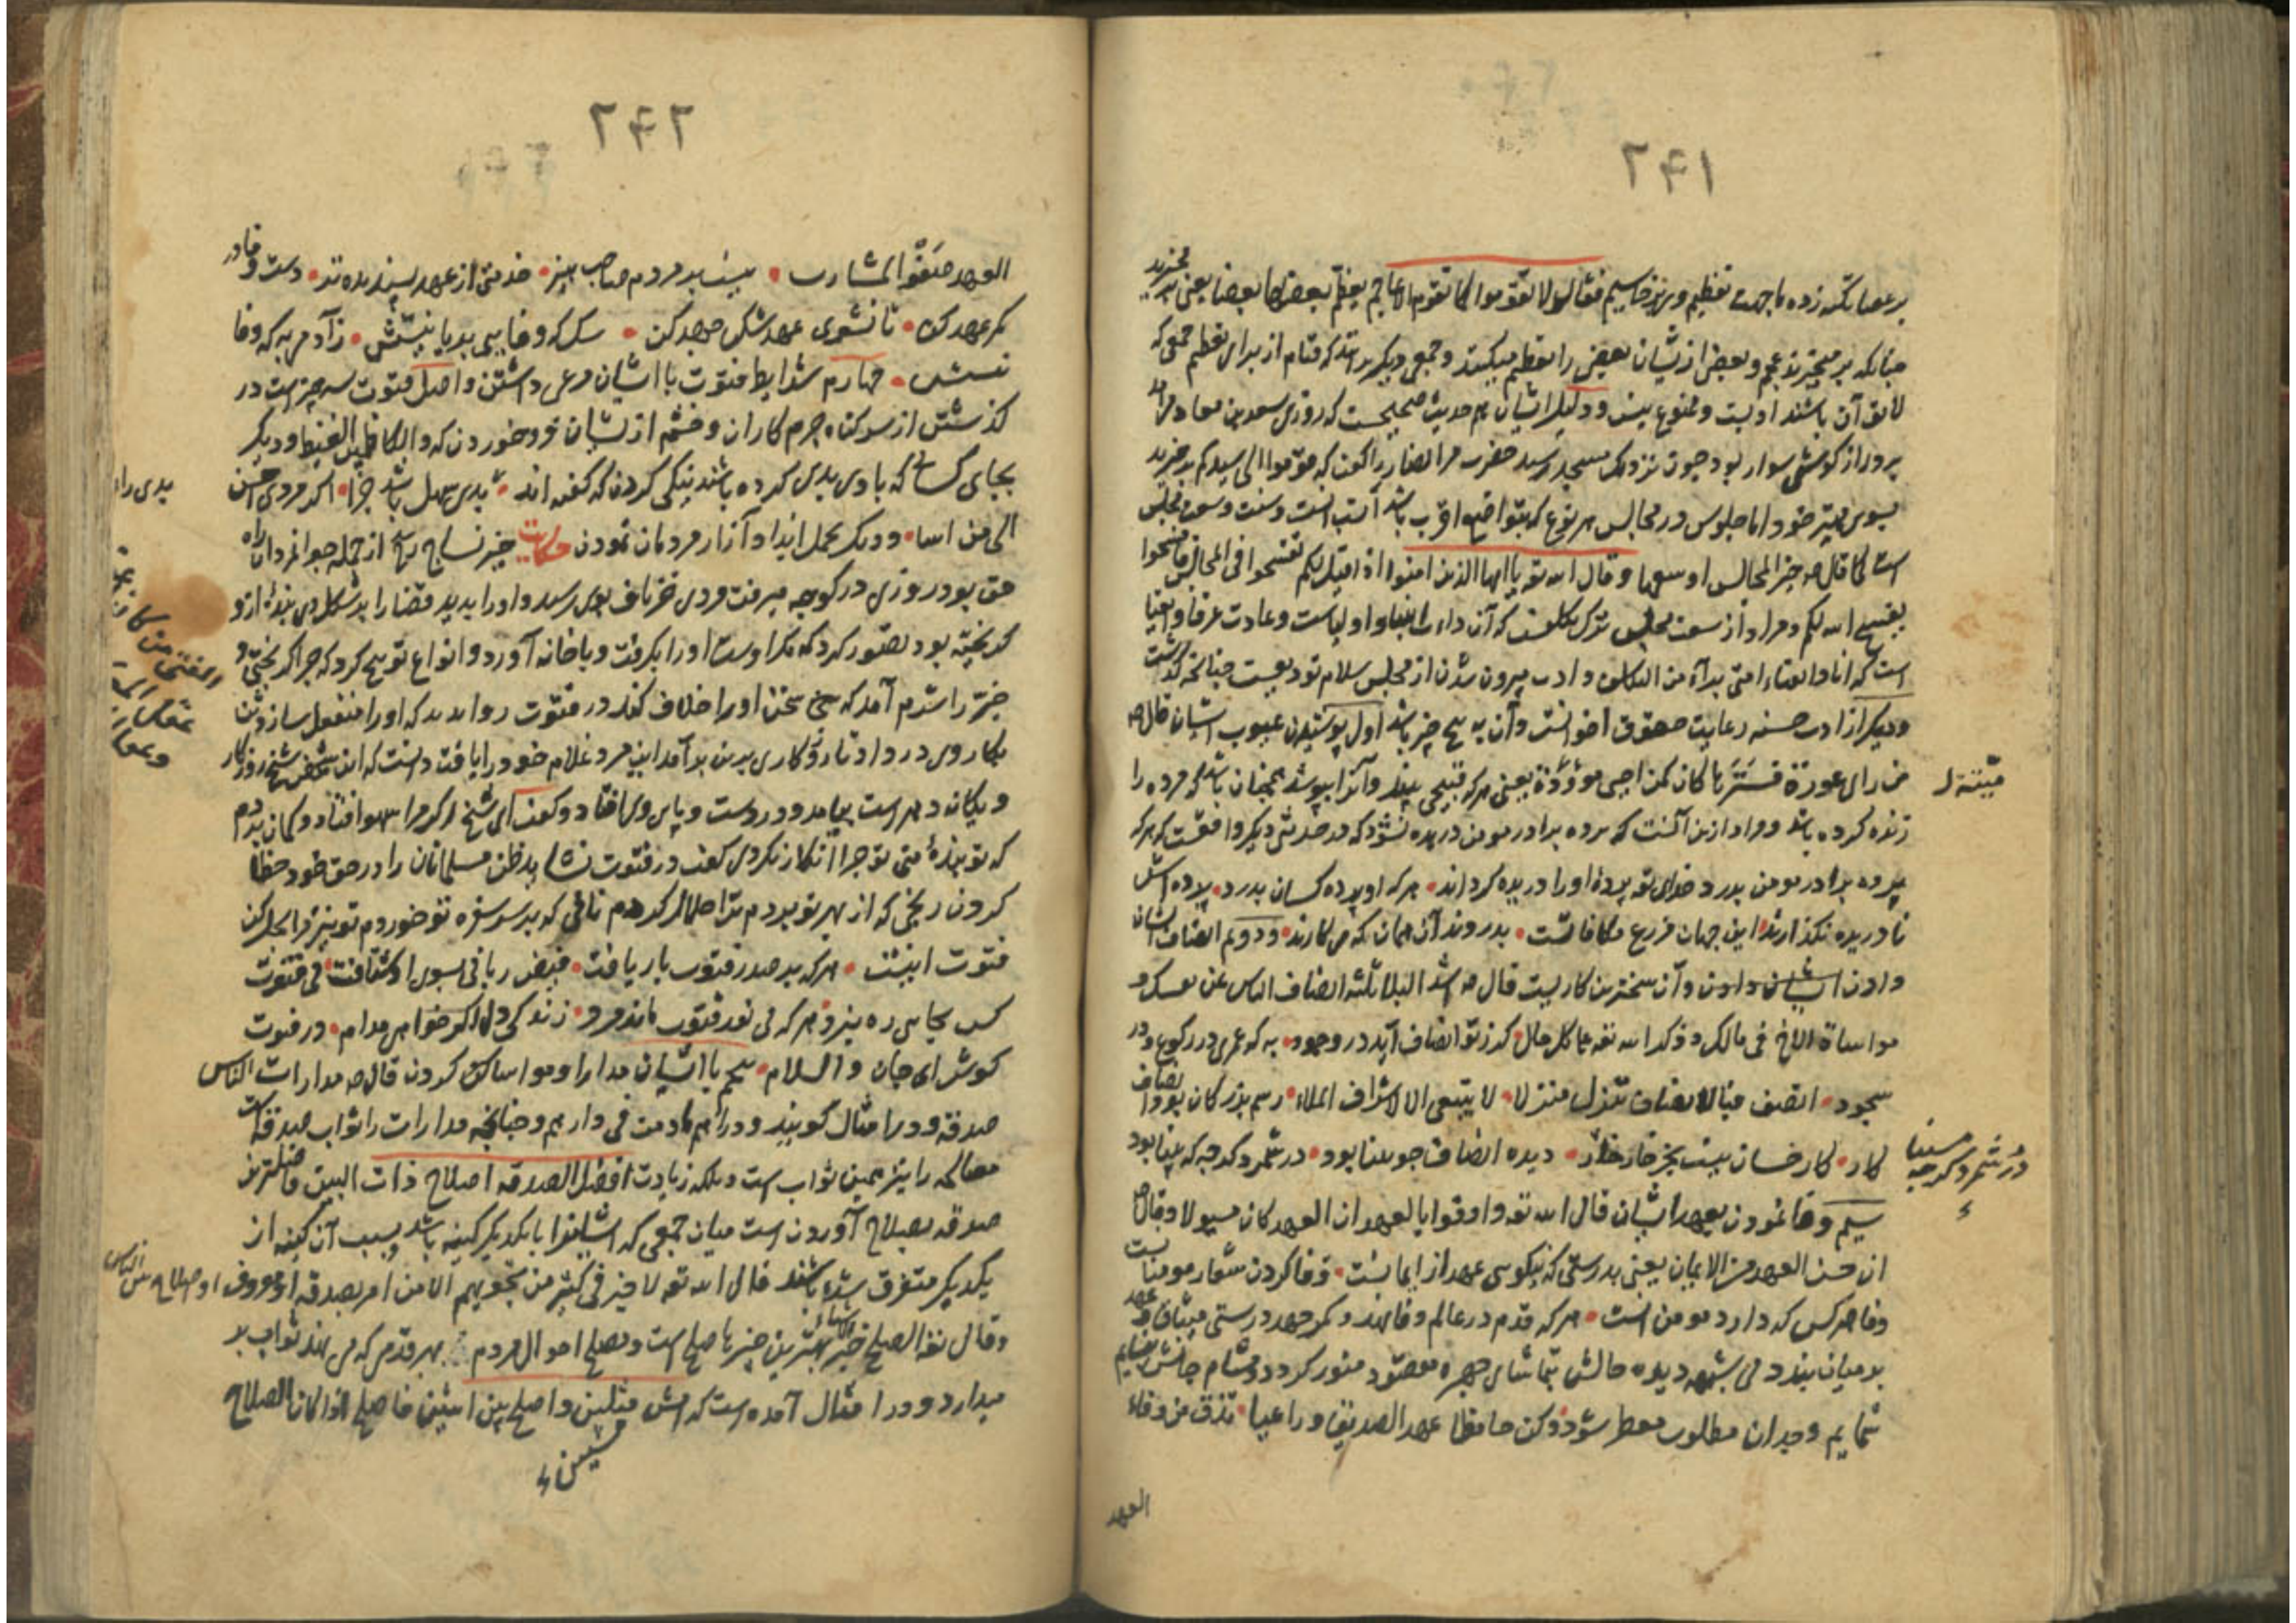 ٢٩١
بر عصا تکیه زده ما جهت تعظیم وی برخاستیم فقال لا تقوموا کما تقوم الاعاجم یعظم بعضها بعضا یعنی بر مخیزید
چنانکه بر میخیزند عجم و بعض ازیشان بعض را تعظیم میکنند و جمعی دیگر برانند که قیام از برای تعظیم جمعی که
لایق آن باشند ادبست و ممنوع نیست و دلیل ایشان هم حدیث صحیحست که روزی سعد بن معاذ
سوار بود چون نزدیک مسجد رسید حضرت مر انصار را گفت که قوموا الی سیدکم برخیزید
بسوی مهتر خود اما جلوس در مجالس بهر نوع که بتواضع اقرب باشد انسب است و سنت وسعت مجلس
است کما قال ص خیر المجالس اوسعها و قال الله تع یا ایها الذین امنوا اذا قیل لکم تفسحوا فی المجالس فافسحوا
یفسح الله لکم و مراد از سعت مجلس ترک تکلفست که آن داب انبیا و اولیاست و عادت عرفا و اتقیا
است که انا و اتقیاء امتی برآء من التکلف و ادب بیرون شدن از مجلس سلام تودیعست چنانچه گذشت
و دیگر از ادب حسنه رعایت حقوق اخوانست و آن به پنج چیز باشد اول پوشیدن عیوب ایشان قال ص
من رای عورة فسترها کان کمن احیی موؤدة یعنی هر که قبیحی بیند و آنرا بپوشد همچنان باشد که مرده را
زنده کرده باشد و مراد ازین آنست که پرده برادر مومن دریده نشود که در حدیثی دیگر واقعست که هر که
پرده برادر مومن بدرد خدای تع پردهٔ او را دریده گرداند هر که او پرده کسان بدرد پرده اش
نادریده نگذارند این جهان مزرع مکافاتست بدروند آن همان که می کارند و دوم انصاف ایشان
دادن و آن سخترین کاریست قال ص اشد البلا ثلثه انصاف الناس عن نفسک و
مواساة الاخ فی مالک و ذکر الله تع علی کل حال گر ز تو انصاف آید در وجود به که عمری در رکوع و در
سجود انصف فبالانصاف تنزل منزلا لا یبتغی الا لاشراف الملاء رسم بزرگان بود انصاف
کار کار خسان نیست بجز دیده انصاف چو بینا بود در شمرد گرچه که بینا بود
سیم وفا نمودن بعهد ایشان قال الله تع و اوفوا بالعهد ان العهد کان مسئولا و قال ص
ان حسن العهد من الایمان یعنی بدرستی که نیکویی عهد از ایمانست وفا کردن شعار مومنانست
وفا هر کس که دارد مومن است هر که قدم در عالم وفا نهد و کمر جهد در رستی میثاق و عهد
بر میان بندد بی شبهه دیده حالش بتماشای چهره مقصود منور گردد و مشام جانش بنسایم
شمایم وجدان مطلوب معطر شود وکن حافظا عهد الصدیق و راعیا تذق من وفاء
العهد
٢٩٢
العهد صفو المشارب نیست بر مردم صاحب هنر خدمتی از عهد پسندیده تر دست وفا در
کمر عهد کن تا نشوی عهد شکن جهد کن سگ که وفا بینی بدریا نیستش ز آدم به که وفا
نیستش چهارم شرایط فتوت با ایشان مرعی داشتن و اصل فتوت سه چیز است در
گذشتن از سر گناه جرم کاران و خشم ازیشان فرو خوردن که و الکاظمین الغیظ و دیگر
بجای کسی که با وی بدی کرده باشند نیکی کردن که گفته اند بدی سهل باشد جزا اگر مردی احسن
الی من اسا و دیگر تحمل ایذا و آزار مردمان نمودن حکایت خیر نساج از جمله جوانمردان راه
حق بود روزی در کوچه میرفت مردی خزباف بوی رسید و او را بدید قضا را بر شکل وی بندهٔ از و
گریخته بود تصور کرد که مگر اوست او را بگرفت و با خانه آورد و انواع توبیخ کرد که چرا گریختی و
خیر را شرم آمد که سخن او را خلاف کند در فتوت روا ندید که او را منفعل سازد تن
بکار وی در داد تا روزگاری برین برآمد این مرد غلام خود را یافت دانست که این شخص شیخ روزگار
و یگانه دهر است بیامد و در دست و پای وی افتاد و گفت ای شیخ اگر مرا سهو افتاد و گمان بردم
که تو بندهٔ منی تو چرا انکار نکردی گفت در فتوت نشاید ظن مسلمانان را در حق خود خطا
کردن رنجی که از بهر تو بردم ترا حلال کردم نانی که بر سر سفره تو خوردم تو نیز مرا بحل کن
فتوت اینست هر که بر صدر فتوت بار یافت فیض ربانی بسوی او شتافت بی فتوت
کس بجایی ره نبرد هر که بی نقد فتوت ماند مرد زندگی دل اگر خواهی مدام در فتوت
کوش ای جان والسلام پنجم با ایشان مدارا و مواسات کردن قال ص مدارات الناس
صدقة و در امثال گویند و دراهم مادمت فی دارهم و چنانچه مدارات را ثواب صدقه است
مصالحه را نیز همین ثواب است و بلکه زیادت افضل الصدقه اصلاح ذات البین فاضلترین
صدقه بصلاح آوردن است میان جمعی که ایشانرا با یکدیگر کینه باشد و بسبب آن کینه از
یکدیگر متفرق شده باشند قال الله تع لا خیر فی کثیر من نجویهم الا من امر بصدقه او معروف او اصلاح بین الناس
و قال تع الصلح خیر بهترین چیزها صلح است و مصلح احوال مردم بهر قدمی که می نهد ثواب
میدارد و در امثال آمده است که امش میلین و اصلح بین اثنین فاصلح اذا کان الصلاح